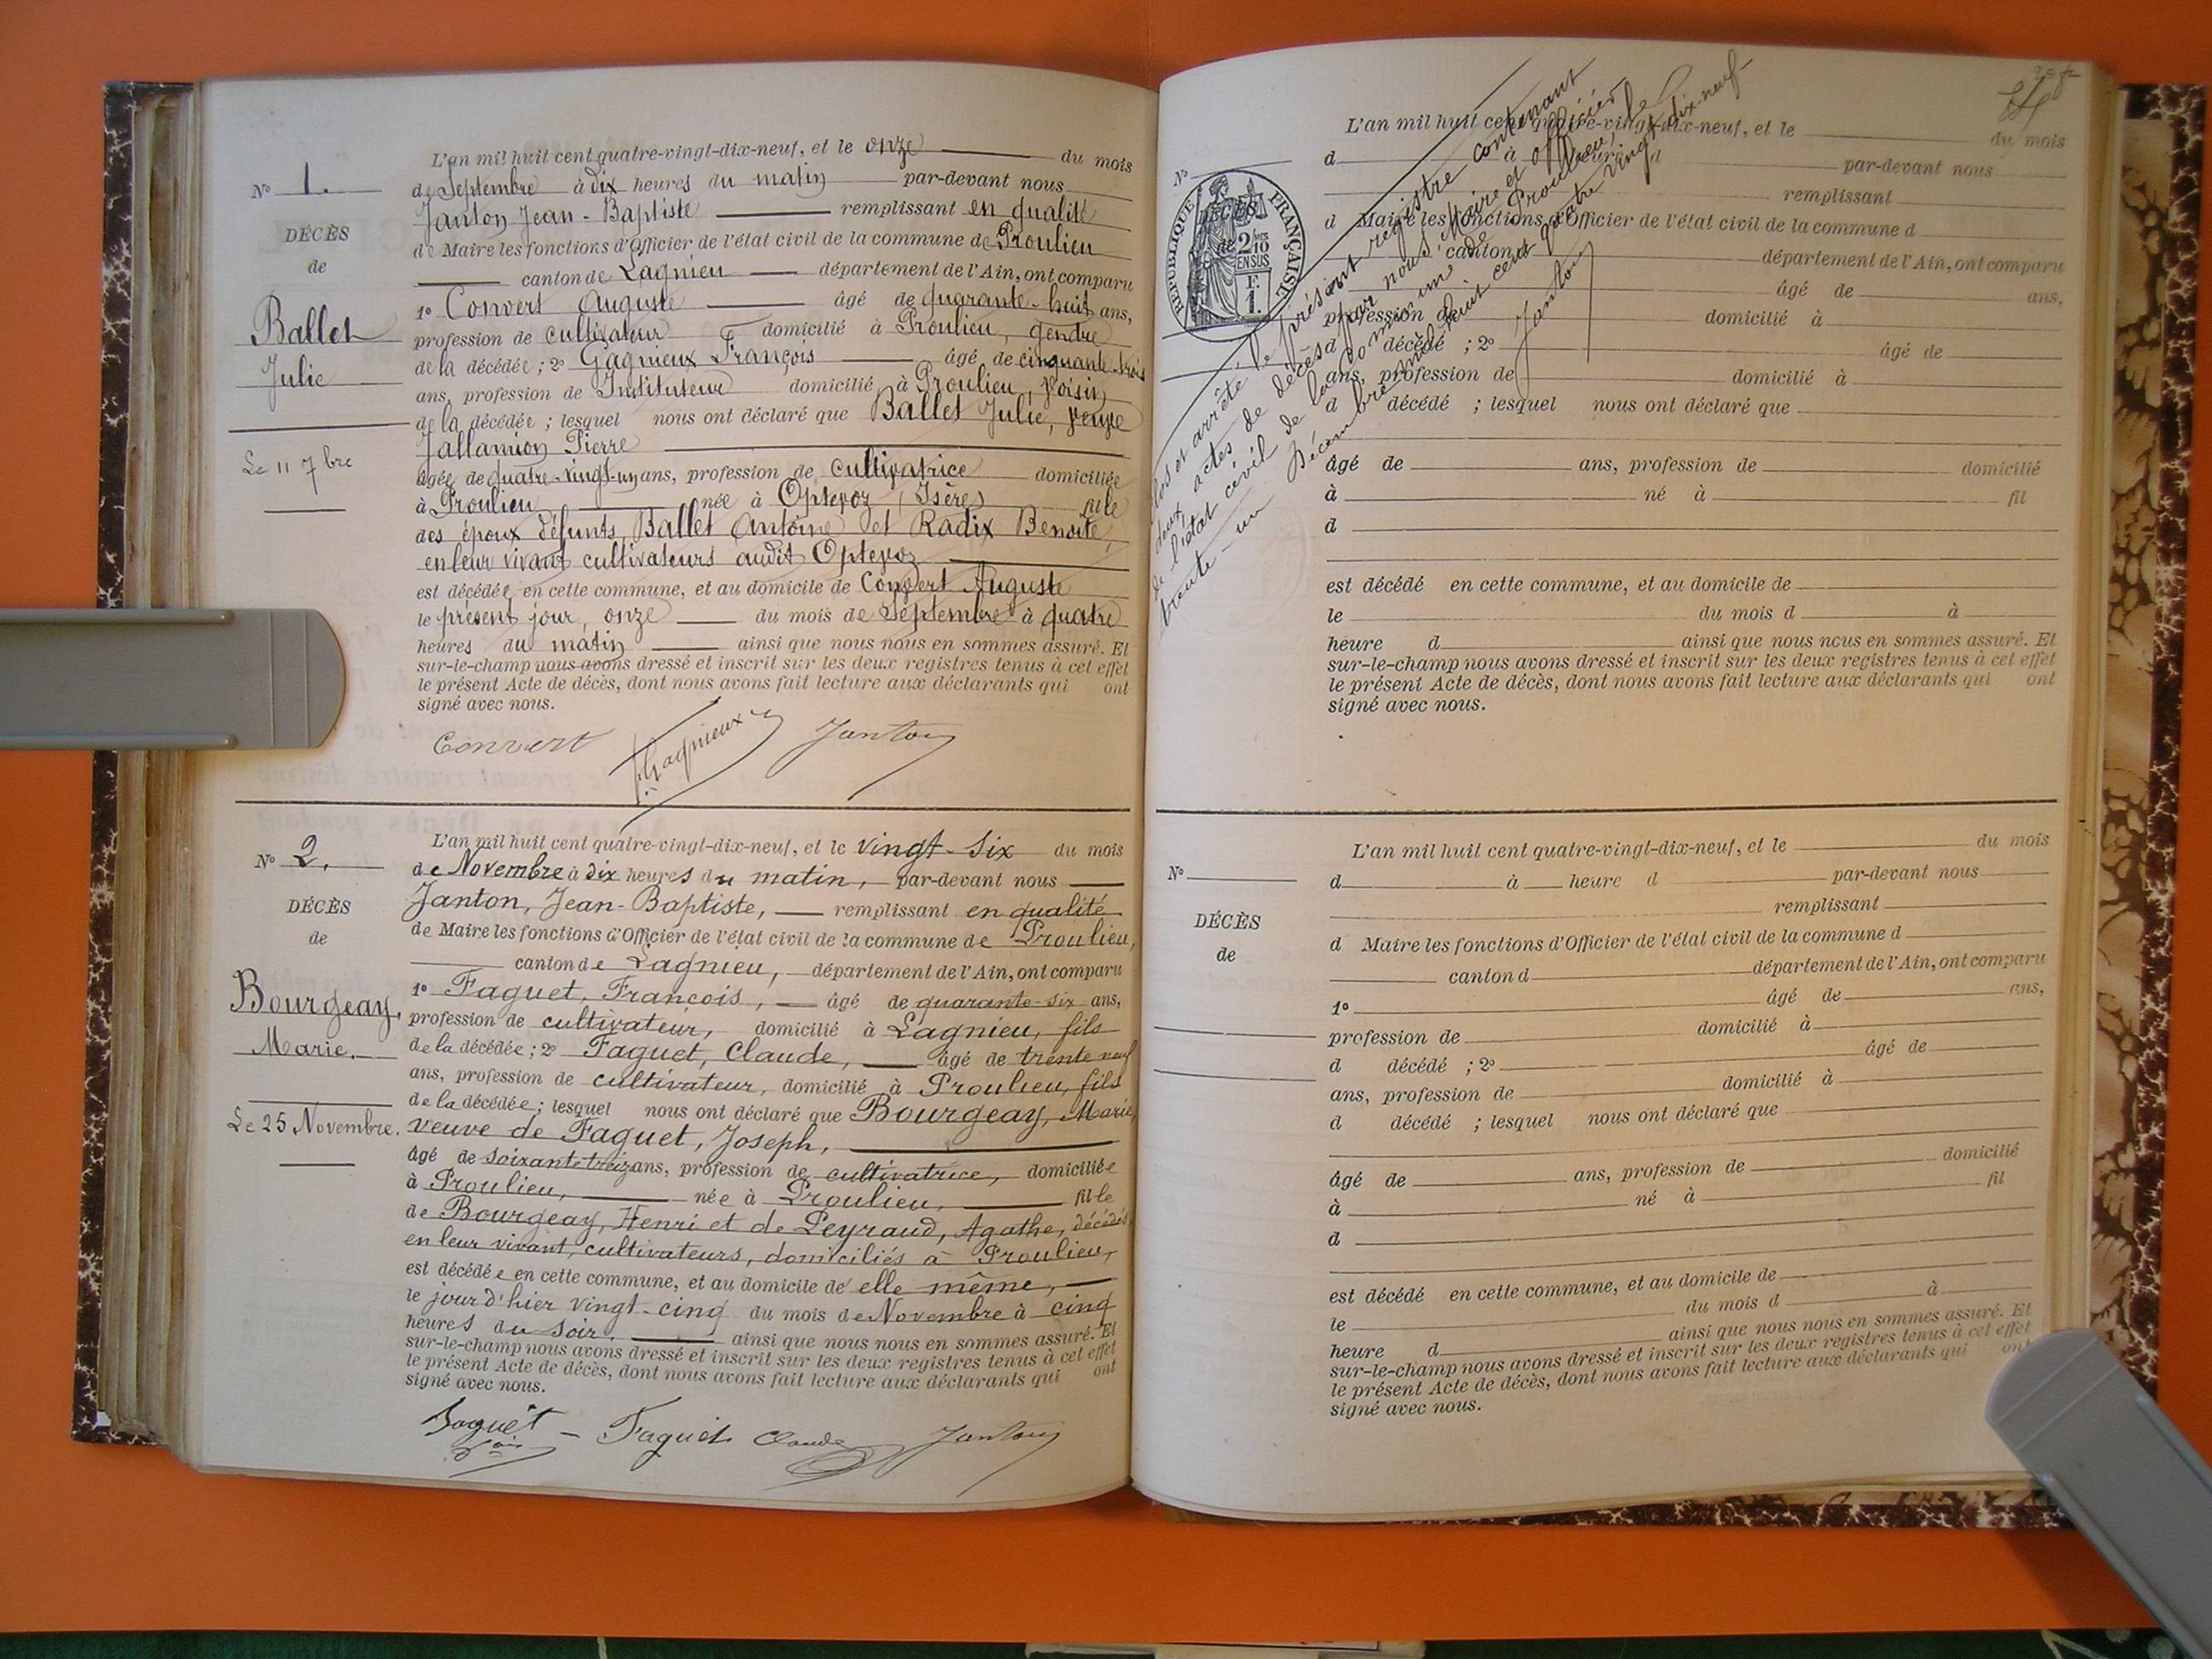 L'an mil huit cent quatre-vingt-dix-neuf, et le onze du mois
de Septembre à dix heures du matin par-devant nous
Janton Jean-Baptiste remplissant en qualité
de Maire les fonctions d'Officier de l'état civil de la commune de Proulieu
canton de Lagnieu département de l'Ain, ont comparu
1º Convert Auguste âgé de quarante-huit ans,
profession de cultivateur domicilié à Proulieu, gendre
de la décédée ; 2º Gagnieux François âgé de cinquante-trois
ans, profession de Instituteur domicilié à Proulieu, voisin
de la décédée ; lesquel nous ont déclaré que Ballet Julie, veuve
Jallamion Pierre
âgée de quatre-vingt-un ans, profession de cultivatrice domiciliée
à Proulieu née à Optevoz (Isère) fille
des époux défunts, Ballet Antoine et Radix Benoite,
en leur vivant cultivateurs audit Optevoz
est décédée en cette commune, et au domicile de Convert Auguste
le présent jour, onze du mois de Septembre à quatre
heures du matin ainsi que nous nous en sommes assuré. Et
sur-le-champ nous avons dressé et inscrit sur les deux registres tenus à cet effet
le présent Acte de décès, dont nous avons fait lecture aux déclarants qui ont
signé avec nous.
Convert Gagnieux Janton
Nº 1.
DÉCÈS
de
Ballet
Julie
Le 11 7bre
Nº 2.
DÉCÈS
de
Bourgeay,
Marie.
Le 25 Novembre.
L'an mil huit cent quatre-vingt-dix-neuf, et le vingt-six du mois
de Novembre à dix heures du matin, par-devant nous
Janton, Jean-Baptiste, remplissant en qualité
de Maire les fonctions d'Officier de l'état civil de la commune de Proulieu,
canton de Lagnieu, département de l'Ain, ont comparu
1º Faguet, François, âgé de quarante-six ans,
profession de cultivateur, domicilié à Lagnieu, fils
de la décédée ; 2º Faguet, Claude, âgé de trente neuf
ans, profession de cultivateur, domicilié à Proulieu, fils
de la décédée ; lesquel nous ont déclaré que Bourgeay, Marie,
veuve de Faguet, Joseph,
âgé de soixante treize ans, profession de cultivatrice, domiciliée
à Proulieu, née à Proulieu, fille
de Bourgeay, Henri et de Peyraud, Agathe, décédés
en leur vivant, cultivateurs, domiciliés à Proulieu,
est décédée en cette commune, et au domicile de elle même,
le jour d'hier vingt-cinq du mois de Novembre à cinq
heures du soir. ainsi que nous nous en sommes assuré. Et
sur-le-champ nous avons dressé et inscrit sur les deux registres tenus à cet effet
le présent Acte de décès, dont nous avons fait lecture aux déclarants qui ont
signé avec nous.
Faguet Faguet Claude Janton
Clos et arrêté le présent registre contenant
deux actes de décès par nous Maire et officier
de l'état civil de la commune de Proulieu, le
trente-un Décembre mil huit cent quatre vingt dix-neuf
Janton
Nº
DÉCÈS
RÉPUBLIQUE FRANÇAISE
2/10
EN SUS
F.
1.
L'an mil huit cent quatre-vingt-dix-neuf, et le du mois
d à heure d par-devant nous
remplissant
d Maire les fonctions d'Officier de l'état civil de la commune d
canton d département de l'Ain, ont comparu
âgé de ans,
profession de domicilié à
d décédé ; 2º âgé de
ans, profession de domicilié à
d décédé ; lesquel nous ont déclaré que
âgé de ans, profession de domicilié
à né à fil
d
est décédé en cette commune, et au domicile de
le du mois d à
heure d ainsi que nous nous en sommes assuré. Et
sur-le-champ nous avons dressé et inscrit sur les deux registres tenus à cet effet
le présent Acte de décès, dont nous avons fait lecture aux déclarants qui ont
signé avec nous.
Nº
DÉCÈS
de
L'an mil huit cent quatre-vingt-dix-neuf, et le du mois
d à heure d par-devant nous
remplissant
d Maire les fonctions d'Officier de l'état civil de la commune d
canton d département de l'Ain, ont comparu
1º âgé de ans,
profession de domicilié à
d décédé ; 2º âgé de
ans, profession de domicilié à
d décédé ; lesquel nous ont déclaré que
âgé de ans, profession de domicilié
à né à fil
d
est décédé en cette commune, et au domicile de
le du mois d à
heure d ainsi que nous nous en sommes assuré. Et
sur-le-champ nous avons dressé et inscrit sur les deux registres tenus à cet effet
le présent Acte de décès, dont nous avons fait lecture aux déclarants qui ont
signé avec nous.